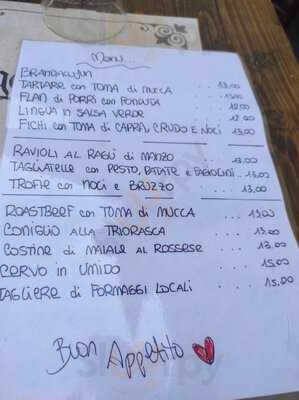 Menu...
BRANDACUJUN
TARTARE con TOMA di MUCCA ... 13.00
FLAN di PORRI con FONDUTA 12.00
LINGUA in SALSA VERDE ... 12.00
FICHI con TOMA di CAPRA, CRUDO E NOCI 13.00
RAVIOLI AL RAGÙ di MANZO 13.00
TAGLIATELLE con PESTO, PATATE e FAGIOLINI .. 13.00
TROFIE con NOCI e BRUZZO ... 13.00
ROASTBEEF con TOMA di MUCCA ... 13.00
CONIGLIO ALLA TRIORASCA ... 13.00
COSTINE di MAIALE AL ROSSESE .. 13.00
CERVO in UMIDO ... 15.00
TAGLIERE di FORMAGGI LOCALI ... 15.00
BUON APPETITO